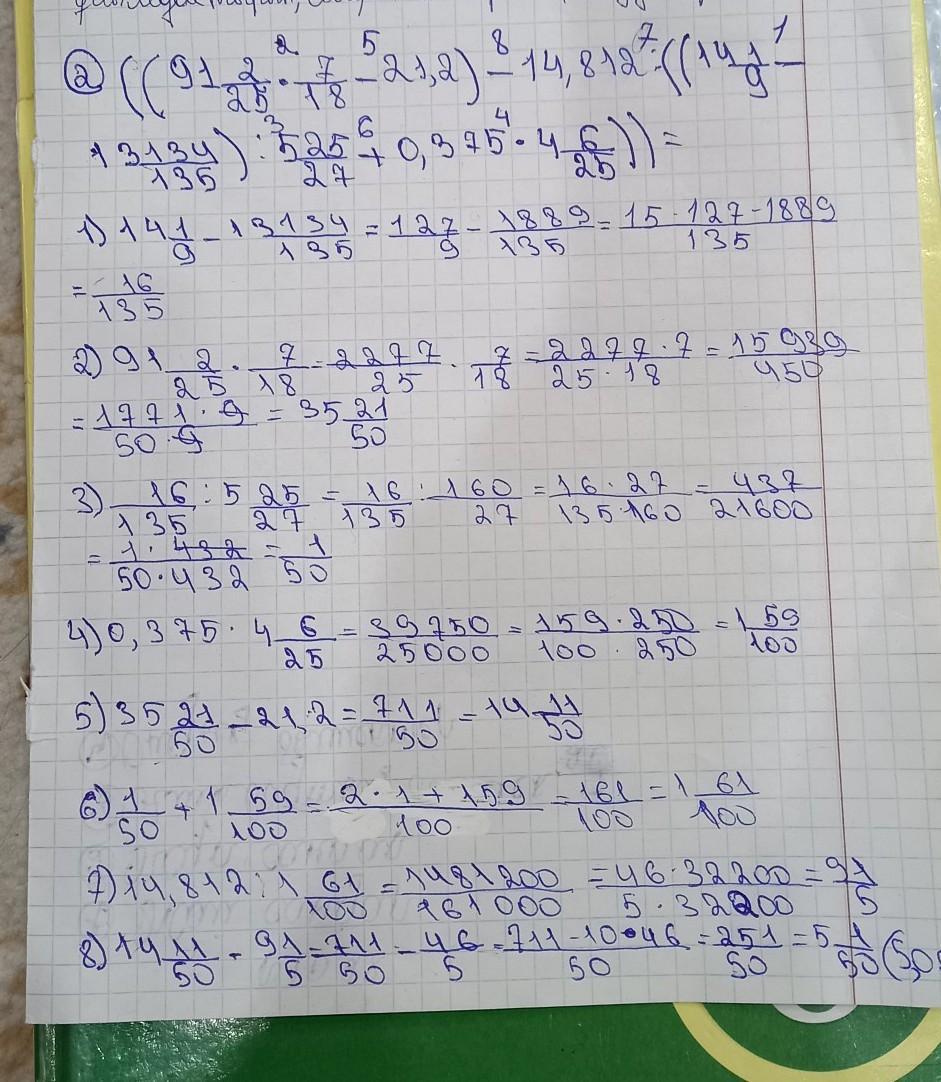 ② ((91 2/25 · 7/18 - 21,2) - 14,812 : ((14 1/9 -
13 134/135) : 5 25/27 + 0,375 · 4 6/25)) =
1) 14 1/9 - 13 134/135 = 127/9 - 1889/135 = 15·127-1889/135
= 16/135
2) 91 2/25 · 7/18 = 2277/25 · 7/18 = 2277·7/25·18 = 15939/450
= 1771·9/50·9 = 35 21/50
3) 16/135 : 5 25/27 = 16/135 : 160/27 = 16·27/135·160 = 437/21600
= 1·432/50·432 = 1/50
4) 0,375 · 4 6/25 = 39750/25000 = 159·250/100·250 = 1 59/100
5) 35 21/50 - 21,2 = 711/50 = 14 11/50
6) 1/50 + 1 59/100 = 2·1+159/100 = 161/100 = 1 61/100
7) 14,812 : 1 61/100 = 1481200/161000 = 46·32200/5·32200 = 9 1/5
8) 14 11/50 - 9 1/5 = 711/50 - 46/5 = 711-10·46/50 = 251/50 = 5 1/50 (5,0